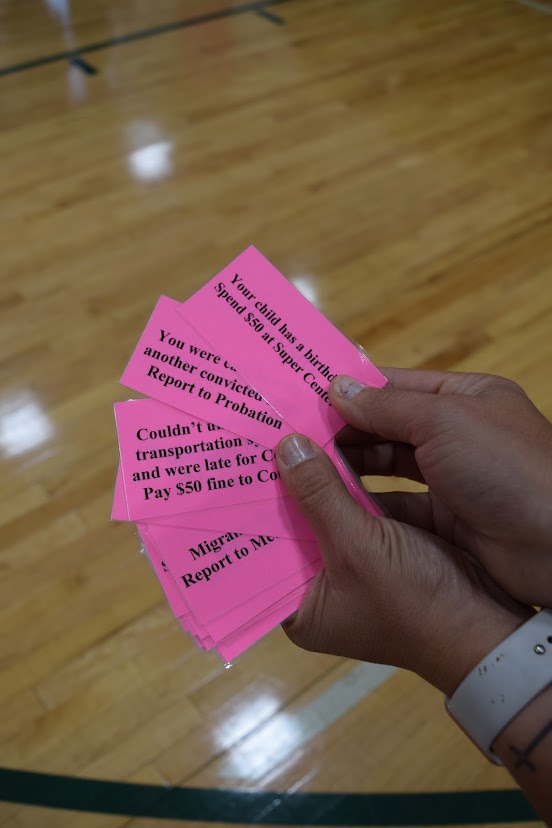 Your child has a
Spend $50 at Super
You were
another convicted
Report to Probation
Couldn't
transportation
and were late for
Pay $50 fine to
Report to